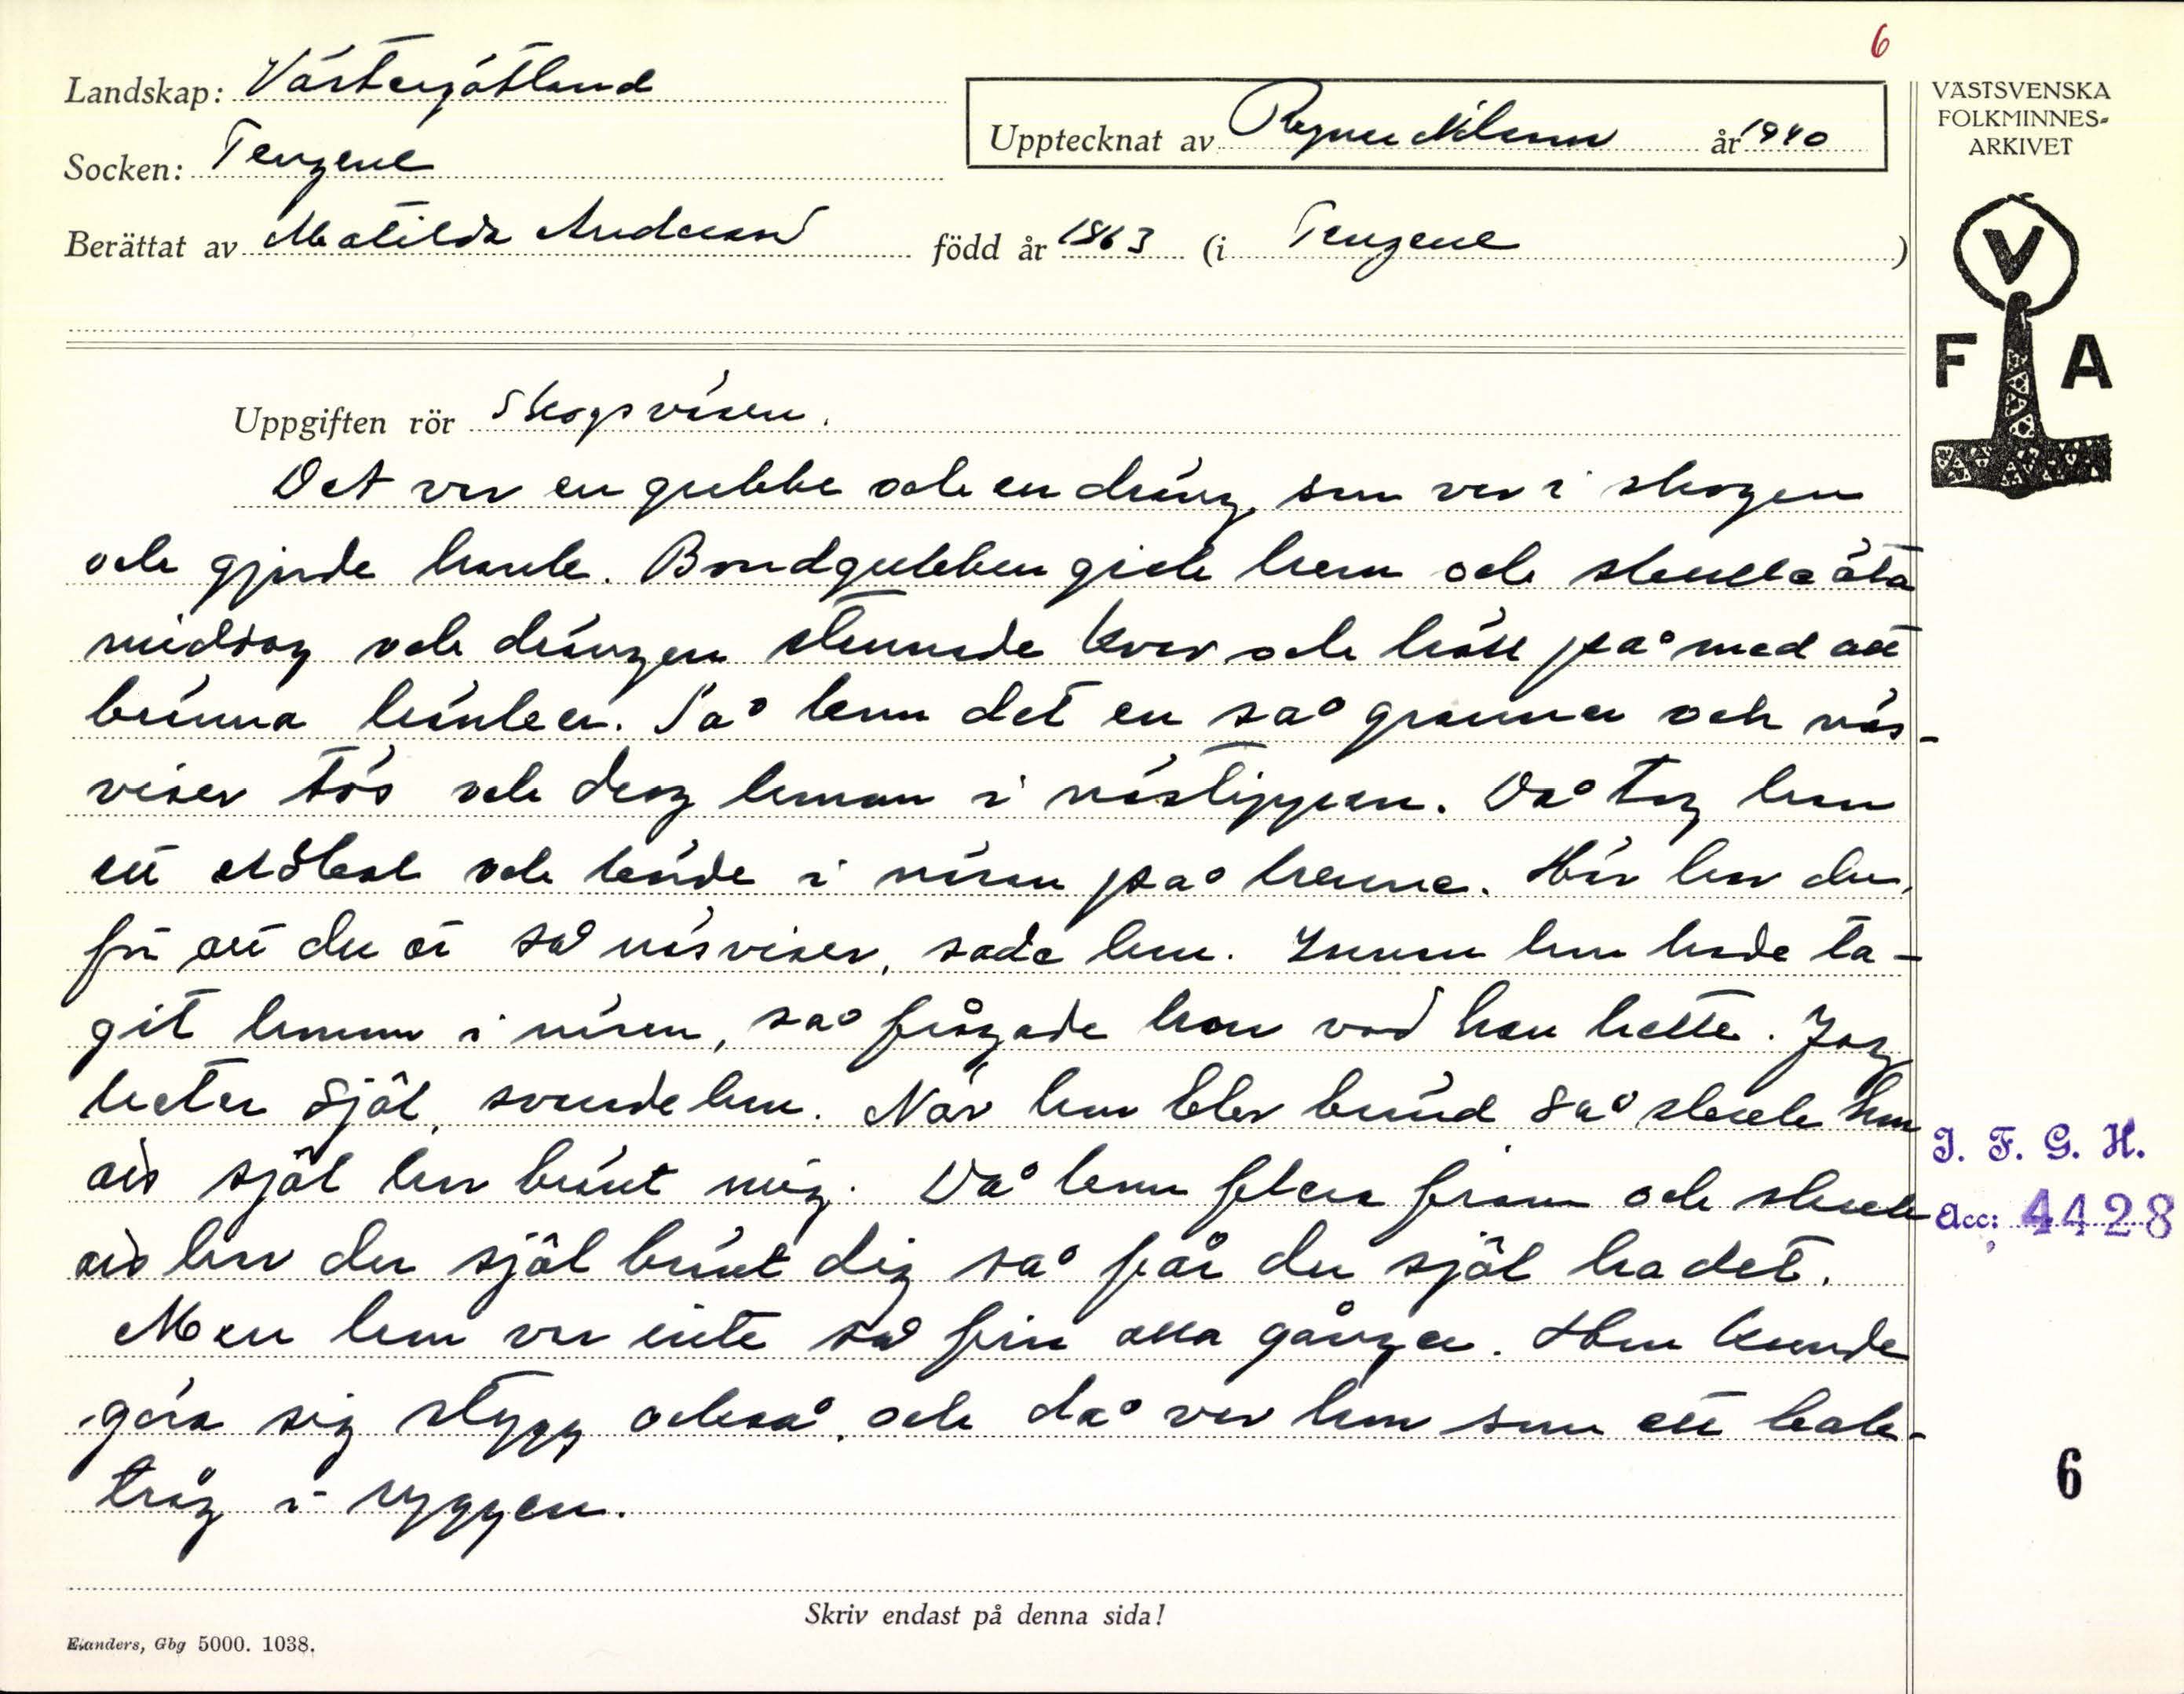 6
Landskap: Västergötland
Socken: Tengene
Upptecknat av Ragnar Nilsson år 1940
Berättat av Matilda Andersson född år 1863 (i Tengene)
VÄSTSVENSKA
FOLKMINNES-
ARKIVET
V
F A
Uppgiften rör Skogsväsen.
Det var en gubbe och en dräng, som var i skogen
och gjorde kol. Bondgubben gick hem och skulle äta
middag och drängen stannade kvar och höll på med att
bränna. Så kom det en så granner och näs-
viser tös och drog honom i nästippen. Då tog han
ett och körde i näsan på henne. Här har du,
för att du är så näsviser, sade han. Innan hon hade ta-
git honom i näsan, så frågade hon vad han hette. Jag
heter Själ, svarade han. När hon blev bränd så skrek hon
ais själ har bränt mig. Då kom flera fram och skrek
ais har du själ bränt dig så får du själ ha det.
Men hon var inte så fin alla gånger. Hon kunde
göra sig stygg också, och då var hon som ett bak-
tråg i ryggen.
I. F. G. H.
Acc: 4428
6
Skriv endast på denna sida!
Elanders, Gbg 5000. 1038.